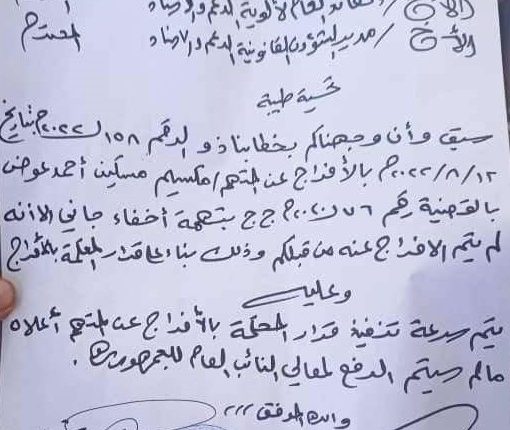 الأخ / قائد القوات الألوية الدعم والإسناد
الأخ / مدير الشؤون القانونية الدعم والإسناد المحترم
تحية طيبة
سبق وأن وجهناكم بخطابنا ذو الرقم ١٥٨ لـ ٢٠٢٢م بتاريخ
٢٠٢٢/٨/١٢م بالأفراج عن المتهم / مكسيم مسكين أحمد عوض
بالقضية رقم ٧٦ لـ ٢٠٢٠م ج ج بتهمة أخفاء جاني الا أنه
لم يتم الافراج عنه من قبلكم وذلك بناء على قرار المحكمة بالأفراج
وعليه
يتم سرعة تنفيذ قرار المحكمة بالأفراج عن المتهم أعلاه
مالم سيتم الرفع لمعالي النائب العام للجمهورية.
والله الموفق ,,,